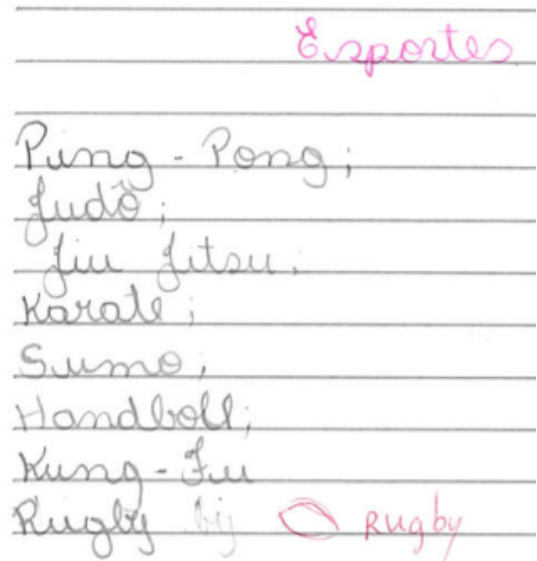 Esportes
Ping-Pong;
Judô;
Jiu Jitsu;
Karate;
Sumo;
Handboll;
Kung-Fu
Rugby by Rugby